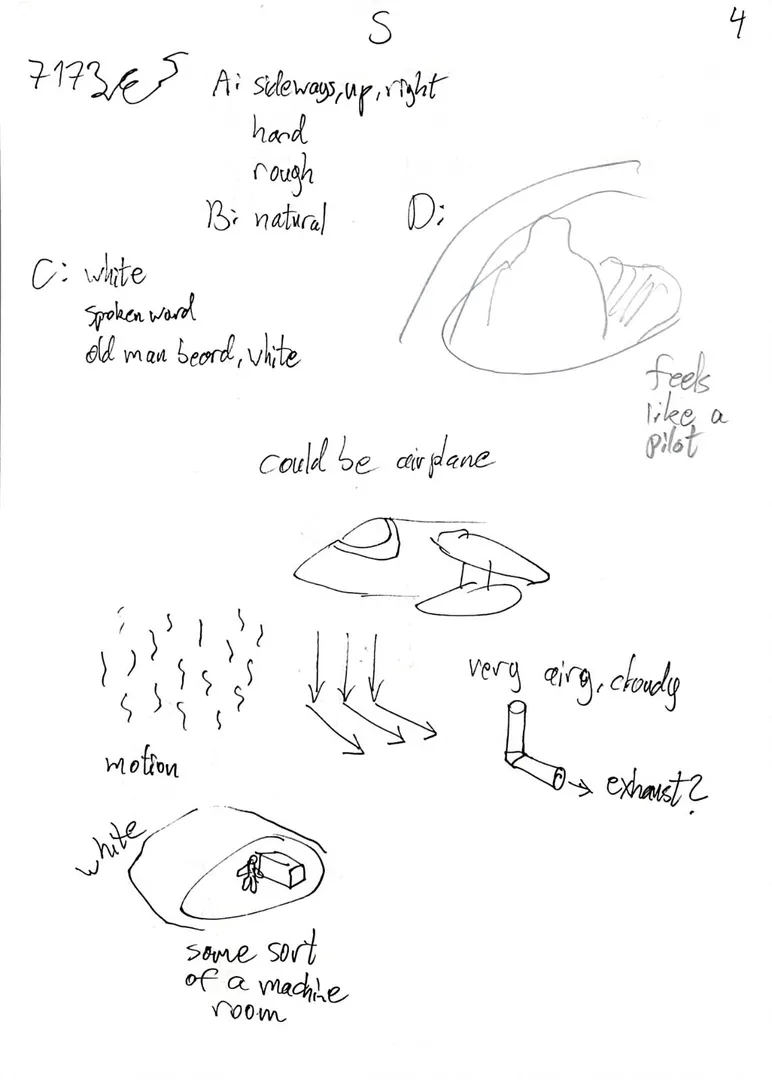 S
4
7173
A: sideways, up, right
hard
rough
B: natural
D:
C: white
spoken word
old man beard, white
feels
like a
pilot
could be airplane
very airy, cloudy
motion
exhaust?
white
some sort
of a machine
room